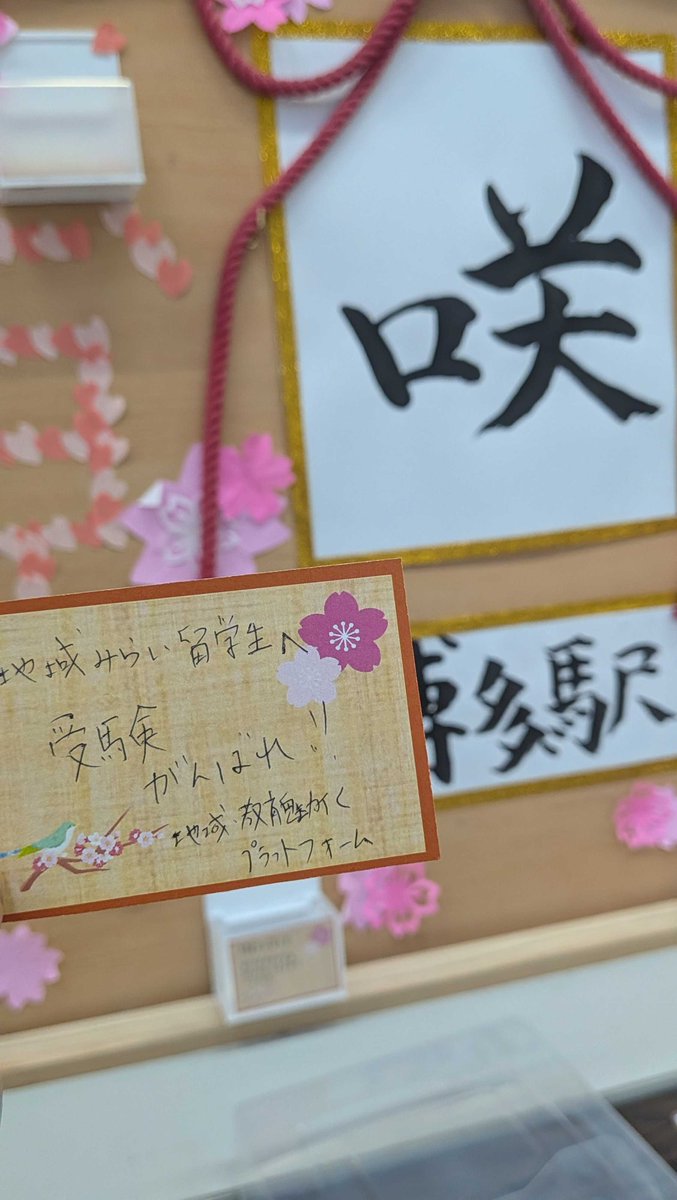 咲
博多駅
地域みらい留学生へ
受験
がんばれ!!
地域・教育魅力化
プラットフォーム